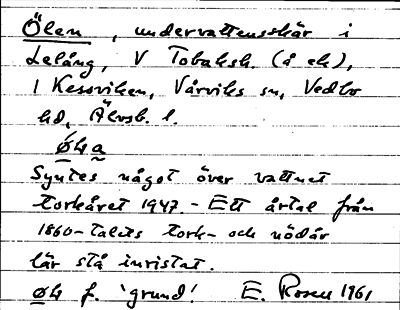 Ölen, undervattensskär i
Lelång, V Tobaksh. (å ek),
i Kesnviken, Vårviks sn, Vedbo
hd, Älvsb. l.
Syntes något över vattnet
torkåret 1947. - Ett årtal från
1860-talets tork- och nödår
lär stå inristat.
f. 'grund'. E. Rosen 1961